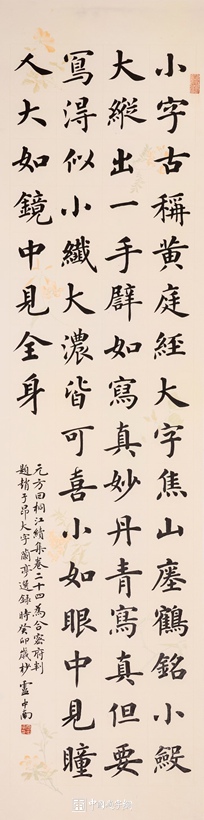 小字古稱黄庭經大字焦山瘞鶴銘小斂
大縱出一手譬如寫真妙丹青寫真但要
寫得似小纖大濃皆可喜小如眼中見瞳
人大如鏡中見全身
元方回桐江續集卷二十四為合密府判
題趙子昂大字蘭亭選録時癸卯歲杪 盧中南